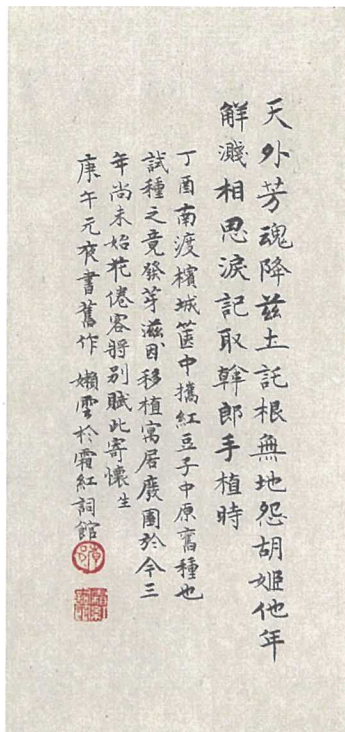 天外芳魂降茲土託根無地怨胡姬他年
解濺相思淚記取韓郎手植時
丁酉南渡檳城篋中攜紅豆子中原舊種也
試種之竟發芽滋因移植寓居廢園於今三
年尚未始花倦客將別賦此寄懷生
庚午元夜書舊作 嬾雲於霜紅詞館